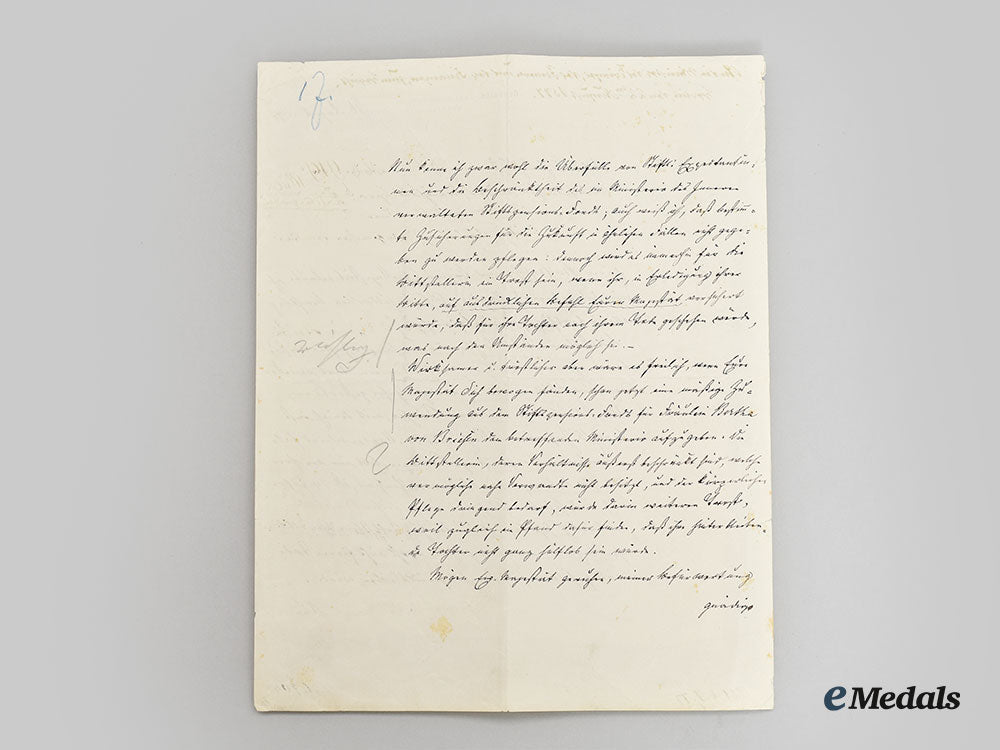 17.
Nun kenne ich zwar wohl die Überfülle von Stifts-Expectantin-
nen und die Beschränktheit des im Ministerio des Inneren
verwalteten Stiftspensions-Fonds; auch weiß ich, daß bestimm-
te Zusicherungen für die Zukunft in ähnlichen Fällen nicht gege-
ben zu werden pflegen: dennoch wird es immerhin für die
Bittstellerin ein Trost sein, wenn ihr, in Erledigung ihrer
Bitte, auf ausdrücklichen Befehl Eurer Majestät versichert
würde, daß für ihre Tochter nach ihrem Tode geschehen würde,
was nach den Umständen möglich sei. –
Wirksamer u. tröstlicher aber wäre es freilich, wenn Eure
Majestät Sich bewogen fänden, schon jetzt eine mäßige Zu-
wendung aus dem Stiftspensions-Fonds für Fräulein Bertha
von dem betreffenden Ministerio aufzugeben. Die
Bittstellerin, deren Verhältnisse äußerst beschränkt sind, welche
vermögliche nahe Verwandte nicht besitzt, und der körperlichen
Pflege dringend bedarf, würde darin weiteren Trost,
weil zugleich ein Pfand dafür finden, daß ihre hinterbleiben-
de Tochter nicht ganz hülflos sein würde.
Mögen Ew. Majestät geruhen, meiner Befürwortung
gnädigst
eMedals